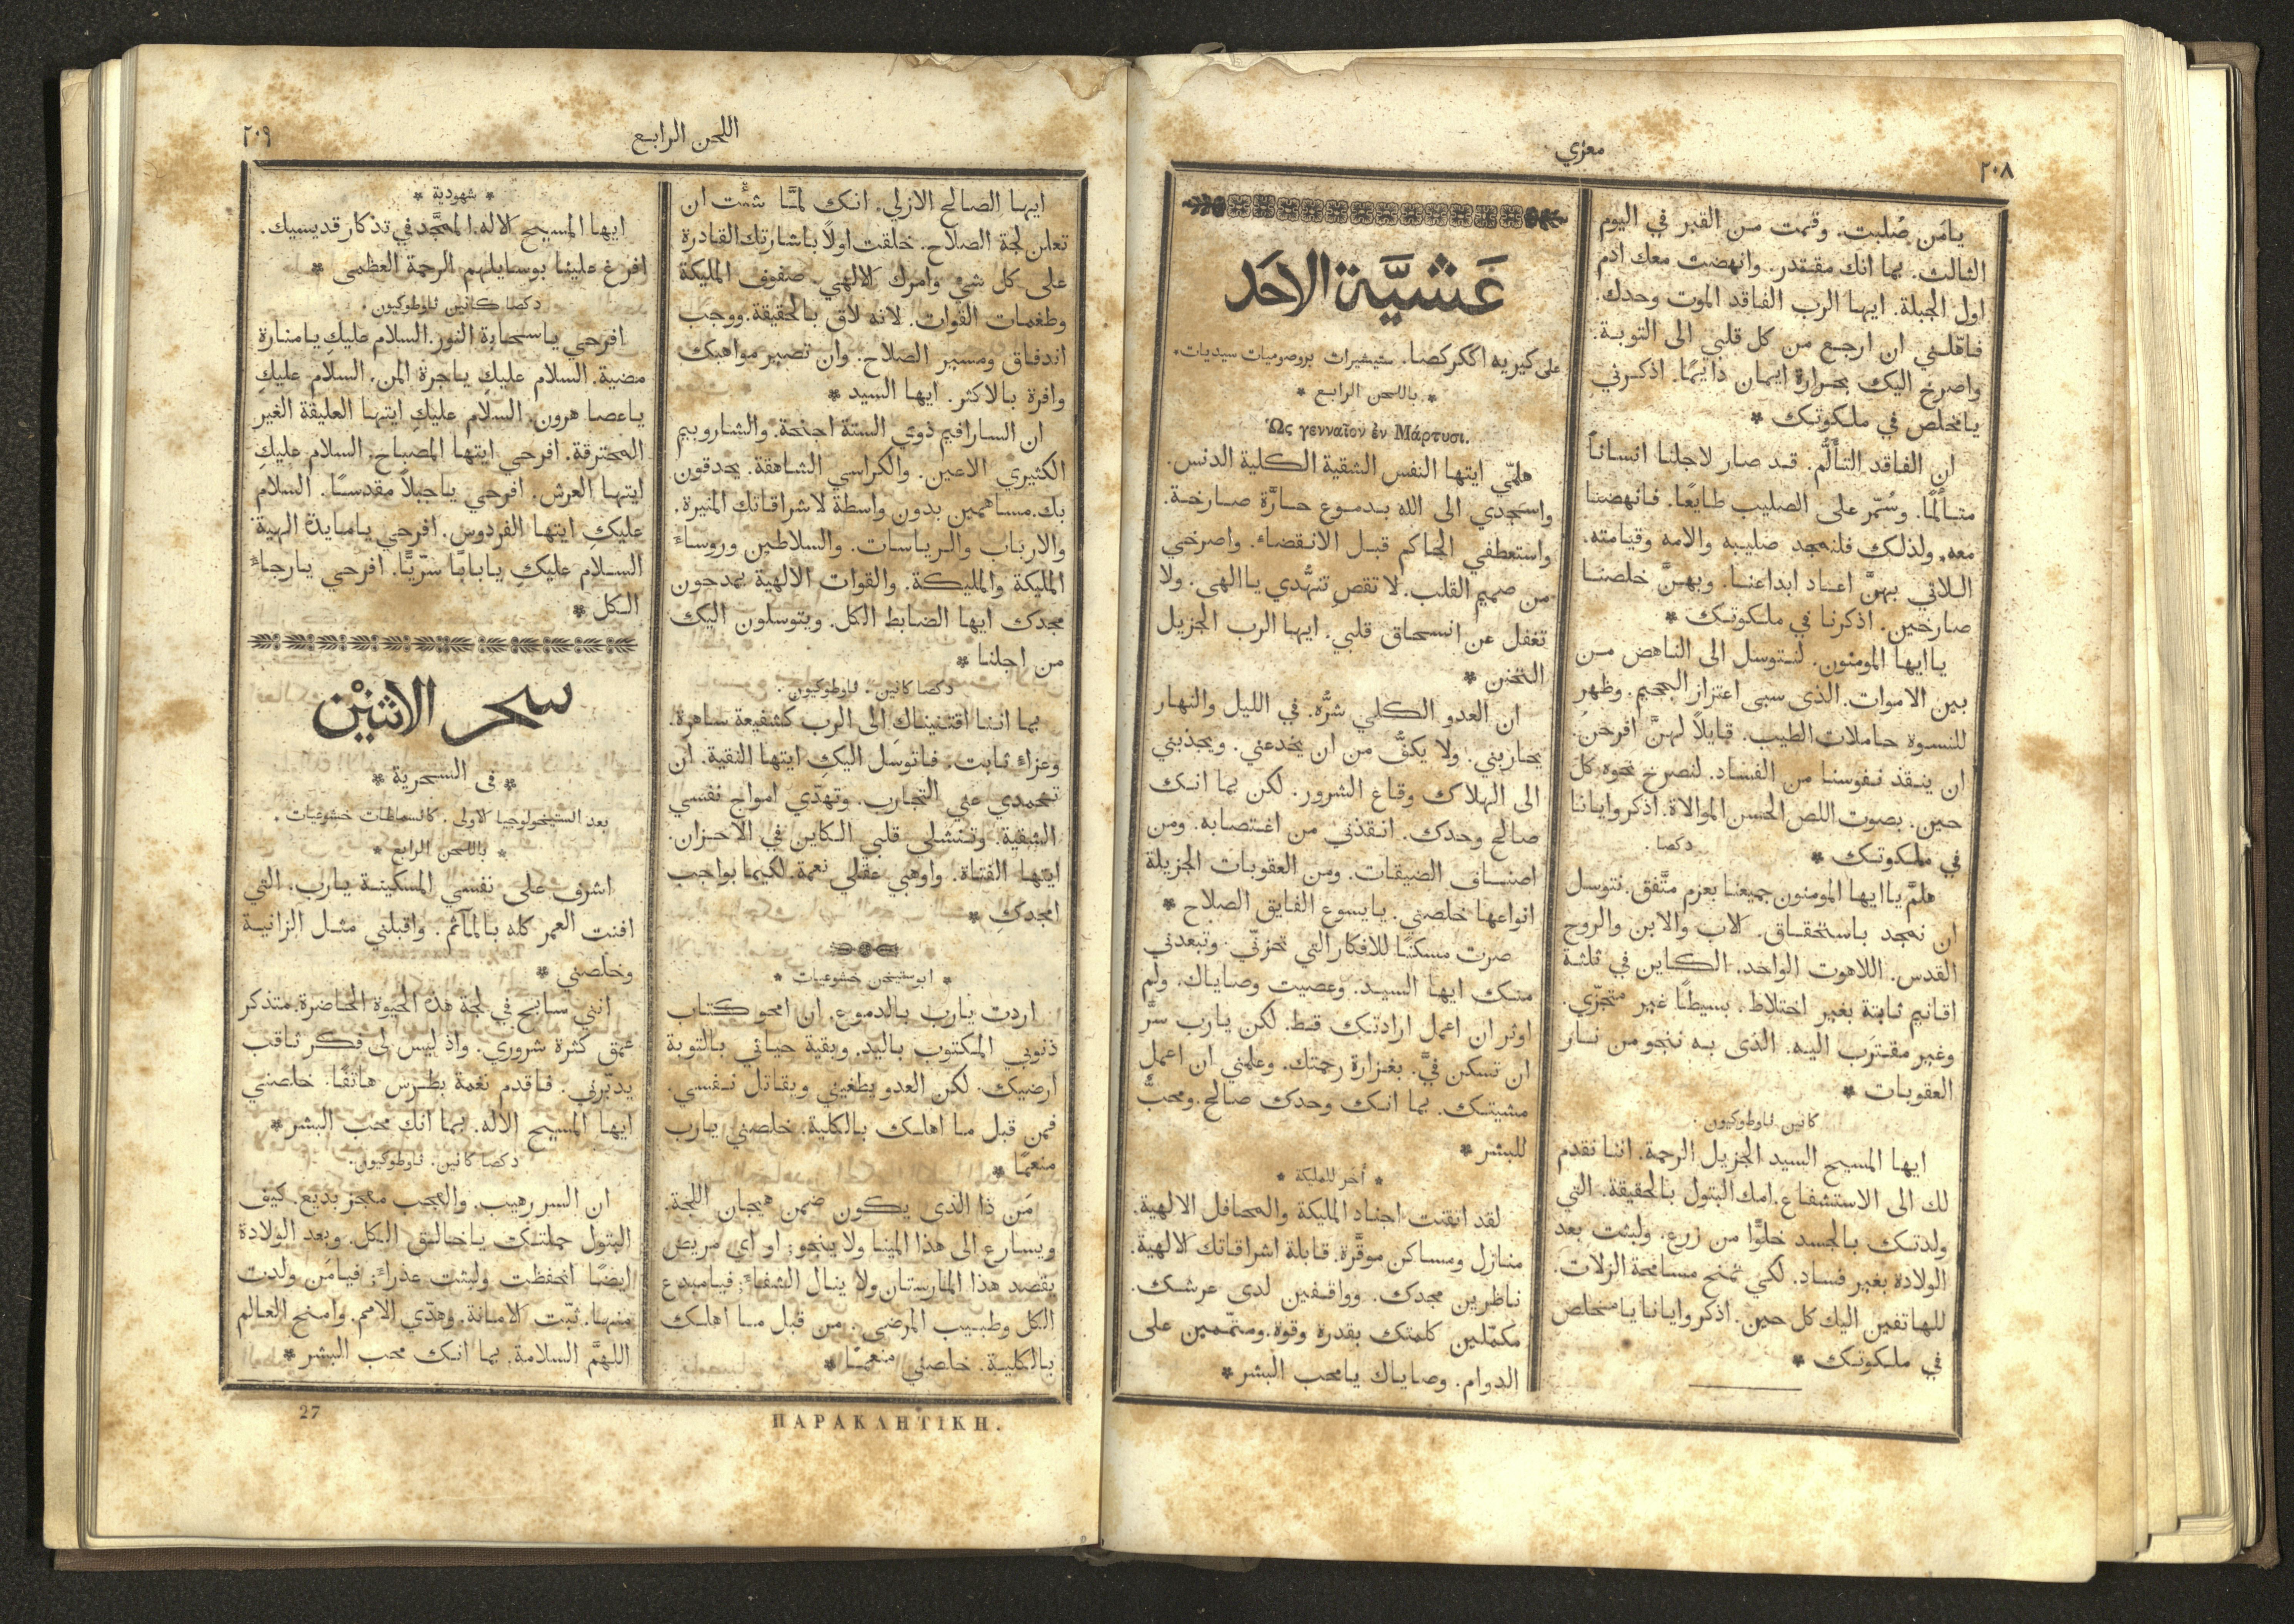 معزي
٢٠٨
يامَن صُلبت. وقمت مـن القبر في اليوم
الثالث. بما انك مقـتدر. وانهضت معك ادم
اول الجبلة. ايها الرب الفاقد الموت وحدك.
فاقّلـني ان ارجـع من كل قلبي الى التوبـة.
واصرخ اليك بحـرارة ايمـان دايمًا. اذكـرني
يامخلص في ملـكوتـك *
ان الفاقد التأَلُّم. قـد صار لاجلنا انسـانـاً
متـأَلمًا. وسُمّر على الصليب طايعًا. فـانهضنا
معه. ولذلك فلنمجد صليبه والامه وقيامته.
اللاتي بهنَّ اعـاد ابداعنـا. وبهـنَّ خلصنـا
صارخين. اذكرنا في ملـكوتـك *
ياايها المومنون. لنـتوسل الى الناهض مـن
بين الاموات. الذى سبى اعتزاز الجحيم. وظهر
للنسوة حـاملات الطيب. قـايلاً لهنَّ افرحنَ.
ان ينـقذ نـفوسنا من الفساد. لنصرخ نحوه كل
حين. بصوت اللص الحسن الموالاة. اذكر وايانا
في ملـكوتـك *
دكصا.
هلمَّ ياايها المومنون جميعنا بعزم متَّفق. نتوسل
ان نمجد باستحقـاق. الاب والابن والروح
القدس. اللاهوت الواحد. الكـاين في ثلثـة
اقـانيم ثـابتة بغير اختلاط. بسيطًا غير متجزّي.
وغير مقـترَب اليـه. الذى بـه ننجو من نـار
العقوبات *
كانين ثاوطوكيون.
ايها المسيح السيد الجزيل الرحمة. اننا نقدم
لك الى الاستشفاع. امك البتول بالحقيقة. التي
ولدتـك بالجسد خلوًّا من زرع. ولبثت بعد
الولادة بغير فساد. لكي تمنح مسامحة الزلات.
للهاتفين اليك كل حين. اذكر وايانا يا مخلص
في ملـكوتـك *
عَشيَّة الاحَد
على كيريه اككركصا. ستيشيرات بروصوميات سيديات.
* باللحن الرابـع *
Ὡς γενναῖον ἐν Μάρτυσι.
هلمّي ايتها النفس الشقية الكلية الدنس.
واسجدي الى الله بـدمـوع حـارَّة صـارخـة.
واستعطفي الحاكم قبـل الانـقضاء. واصرخي
من صميم القلب. لا تقصِ تنهُّدي ياالهى. ولا
تغفل عن انسحـاق قلبي. ايها الرب الجزيل
التحنن *
ان العدو الكـلي شرُّه. في الليل والنهـار
يحـاربني. ولا يكفُّ من ان يخدعني. ويجذبني
الى الهلاك وقـاع الشرور. لكن بما انـك
صالح وحدك. انـقذني من اغـتصابه. ومن
اصنـاف الضيقات. ومن العقوبات الجزيلة
انواعها خلصني. يايسوع الفايق الصلاح *
صرت مسكنًا للافكار التي تحزنّي. وتبعدني
منـك ايها السيـد. وعصيت وصاياك. ولم
اوثر ان اعمل ارادتـك قـط. لكن يارب سرَّ
ان تسكن فيَّ. بغـزارة رحمتك. وعلمني ان اعمل
مشيتـك. بما انـك وحدك صالح. ومحبٌّ
للبشر *
* اخر للمليكة *
لقد اتقنت اجناد المليكة والمحافل الالهية.
منـازل ومساكن موقَّرة. قابلة اشراقاتك الالهية.
نـاظرين مجدك. وواقـفين لدى عرشـك.
مكمّلين كلمتك بقدرة وقوة. ومتمّـمين على
الدوام. وصاياك يامحب البشر *
اللحن الرابـع
٢٠٩
ايها الصالح الازلي. انـك لمَّا شئت ان
تعلن لجة الصلاح. خلقت اولاً باشارتك القادرة
على كل شي وامرك الالهي. صفوف المليكة
وطغمات القوات. لانه لاق بالحقيقة. ووجب
اندفـاق ومسير الصلاح. وان تصير مواهبك
وافرة بالاكثر. ايها السيد *
ان السارافيم ذوي الستة اجنحة. والشاروبيم
الكثيري الاعين. والكراسي الشاهقة. يحدقون
بك. مساهمين بدون واسطة لاشراقاتك المنيرة.
والارباب والـرياسات. والسلاطين وروساءَ
المليكة والمليـكة. والقوات الالهية يمدحون
مجدك ايها الضابط الكل. ويتوسلون اليك
من اجلنـا *
دكصا كانين. ثاوطوكيون.
بما اننـا اقتنينـاكِ الى الرب كشفيعة ساهرة.
وعزاءٍ ثابت. فاتوسل اليكِ ايتها النقية. ان
تخمدي عني التجارب. وتهدّي امواج نفسي
الشقية. وتنتشلي قلبي الكاين في الاحـزان.
ايتها الفتاة. واوهبي عقلي نعمة. لكيما بواجب
امجدكِ *
* ابوستيخن خشوعيات *
اردت يارب بالدموع. ان امحو كتـاب
ذنوبي المـكتوب باليد. وبقية حياتي بالتوبة
ارضيك. لكن العدو يطغيني ويقـاتل نـفسي.
فمن قبل مـا اهلـك بالكلية. خلصني يـارب
منعمًا *
مَن ذا الذى يـكون ضمن هيجان اللجة.
ويسارع الى هذا المينا ولا ينجو: او اي مريض
يقصد هذا المارستان ولا ينـال الشفاءَ: فيامبدع
الكل وطبيب المرضى. من قبل مـا اهلـك
بالكليـة. خلصني منعمًـا *
* شهودية *
ايها المسيح الاله. الممجَّد في تذكار قديسيك.
افرغ علينـا بوسايلهم الرحمة العظمى *
دكصا كـانين ثاوطوكيون.
افرحي ياسحابة النور. السلام عليكِ يامنـارة
مضية. السلام عليكِ ياجرة المن. السلام عليكِ
ياعصا هرون. السلام عليكِ ايتها العليقة الغير
المحترقة. افرحي ايتها المصباح. السلام عليكِ
ايتها العرش. افرحي ياجبلاً مقدسًـا. السلام
عليكِ ايتها الفردوس. افرحي يامايدة الهية.
السـلام عليكِ يابابًا سّريًّا. افرحي يـارجاءَ
الـكل *
سحر الاثنيْن
* فى السحرية *
بعد الستيخولوجيا الاولى. كانسماطات خشوعيات.
* باللحن الرابع *
اشرف على نفسي المسكينـة يـارب. التي
افنت العمر كله بالمآثم. واقبلني مثـل الزانيـة
وخلصني *
انني سابح في لجة هذه الحيوة الحاضرة. متذكر
عمق كثرة شروري. واذ ليس لى فـكر ثـاقب
يدبّرني. فـاقدم نغمة بطـرس هاتفًـا. خلصني
ايها المسيح الاله. بما انك محب البشر *
دكصا كانين. ثاوطوكيون.
ان السر رهيب. والعجب معجز بديع. كيف
البتول حملتـكَ ياخـالـق الـكل. وبعد الولادة
ايضًـا انحفظت ولبثت عذراءَ: فيامَن ولدت
منهـا. ثبّت الامانة. وهدّي الامم. وامنح العالم
اللهمَّ السلامة. بما انـك محب البشر *
27
ΠΑΡΑΚΛΗΤΙΚΗ.